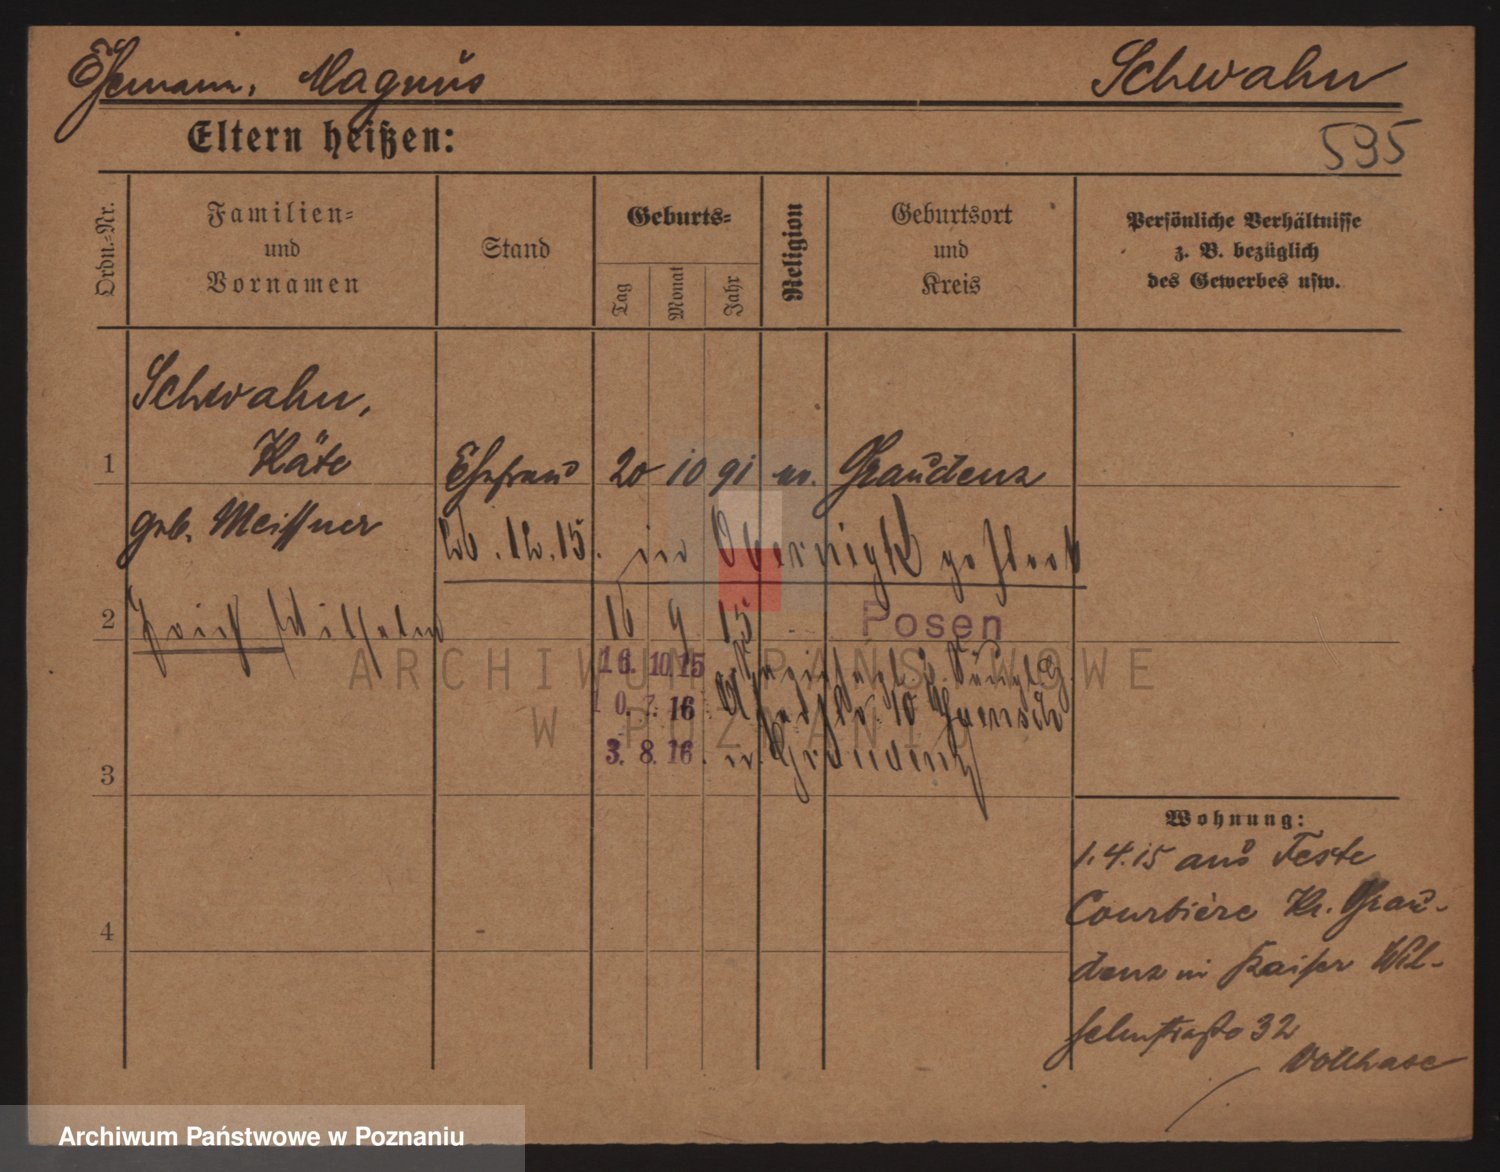 Ehemann, Magnus Schwahn
Eltern heißen:
595
Ordn.-Nr.
Familien-
und
Vornamen
Stand
Geburts-
Tag
Monat
Jahr
Religion
Geburtsort
und
Kreis
Persönliche Verhältnisse
z. B. bezüglich
des Gewerbes usw.
Schwahn,
Käte
1 Ehefrau 20 10 91 Graudenz
geb. Meissner
in Obernigk
2 Wilhelm 16 9 15 Posen
16. 10. 15
10. 7. 16
3. 8. 16. Graudenz
3
4
Wohnung:
1.4.15 aus Feste
Courbière Kr. Grau-
denz in Kaiser Wil-
helmstraße 32
ARCHIWUM PAŃSTWOWE
W POZNANIU
Archiwum Państwowe w Poznaniu